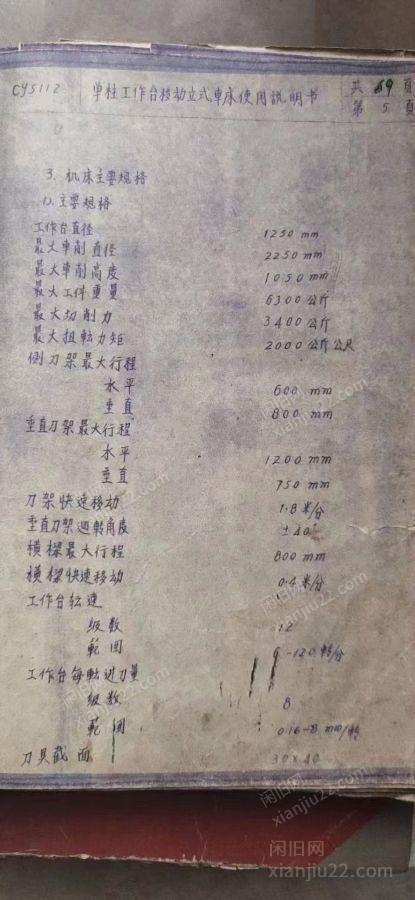 CY5112 單柱工作台移动立式車床使用說明书 共69頁
第5頁
3. 机床主要规格
1). 主要規格
工作台直径 1250 mm
最大車削直径 2250 mm
最大車削高度 1050 mm
最大工件重量 6300 公斤
最大切削力 3400 公斤
最大扭転力矩 2000 公斤公尺
侧刀架最大行程
水平 600 mm
垂直 800 mm
垂直刀架最大行程
水平 1200 mm
垂直 750 mm
刀架快速移动 1.8 米/分
垂直刀架迴転角度 ±40°
横樑最大行程 800 mm
横樑快速移动 0.4 米/分
工作台転速
级数 12
範囲 6-120 轉/分
工作台每転进刀量
级数 8
範囲 0.16-8 mm/轉
刀具截面 30×40
闲旧网
xianjiu22.com
闲旧网
xianjiu22.com